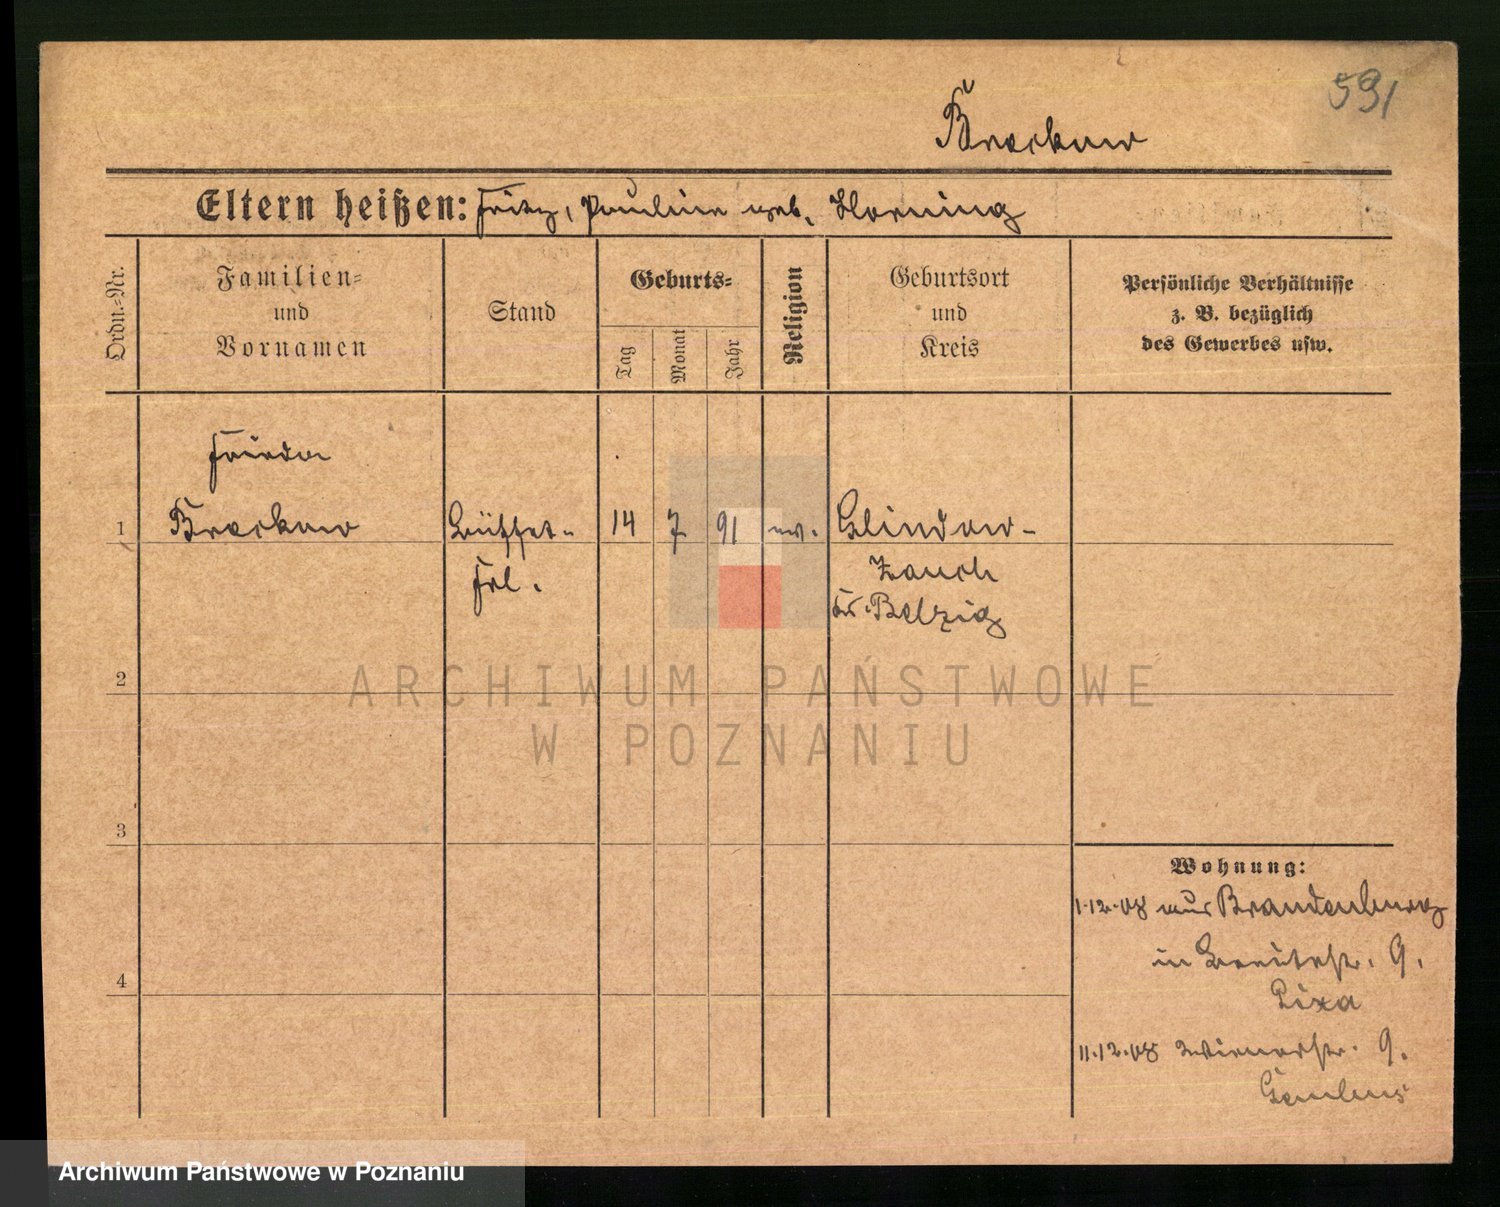 591
Brockow
Eltern heißen: Fritz, Pauline geb. Hornung
Ordn.=Nr.
Familien=
und
Vornamen
Stand
Geburts=
Tag
Monat
Jahr
Religion
Geburtsort
und
Kreis
Persönliche Verhältnisse
z. B. bezüglich
des Gewerbes usw.
Frieda
1 Brockow Büffet- 14 7 91 ev. Glindow-
Frl. Zauch
Belzig
2
ARCHIWUM PAŃSTWOWE
W POZNANIU
3
Wohnung:
1.12.08 aus Brandenburg
in Breitestr. 9.
4
11.12.08 9.
Archiwum Państwowe w Poznaniu